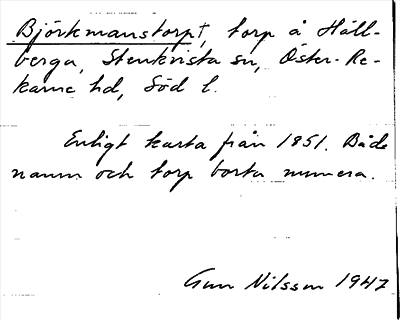 Björkmanstorp†, torp å Häll-
berga, Stenkvista sn, Öster-Re-
karne hd, Söd l.
Enligt karta från 1851. Både
namn och torp borta numera.
Gun Nilsson 1947